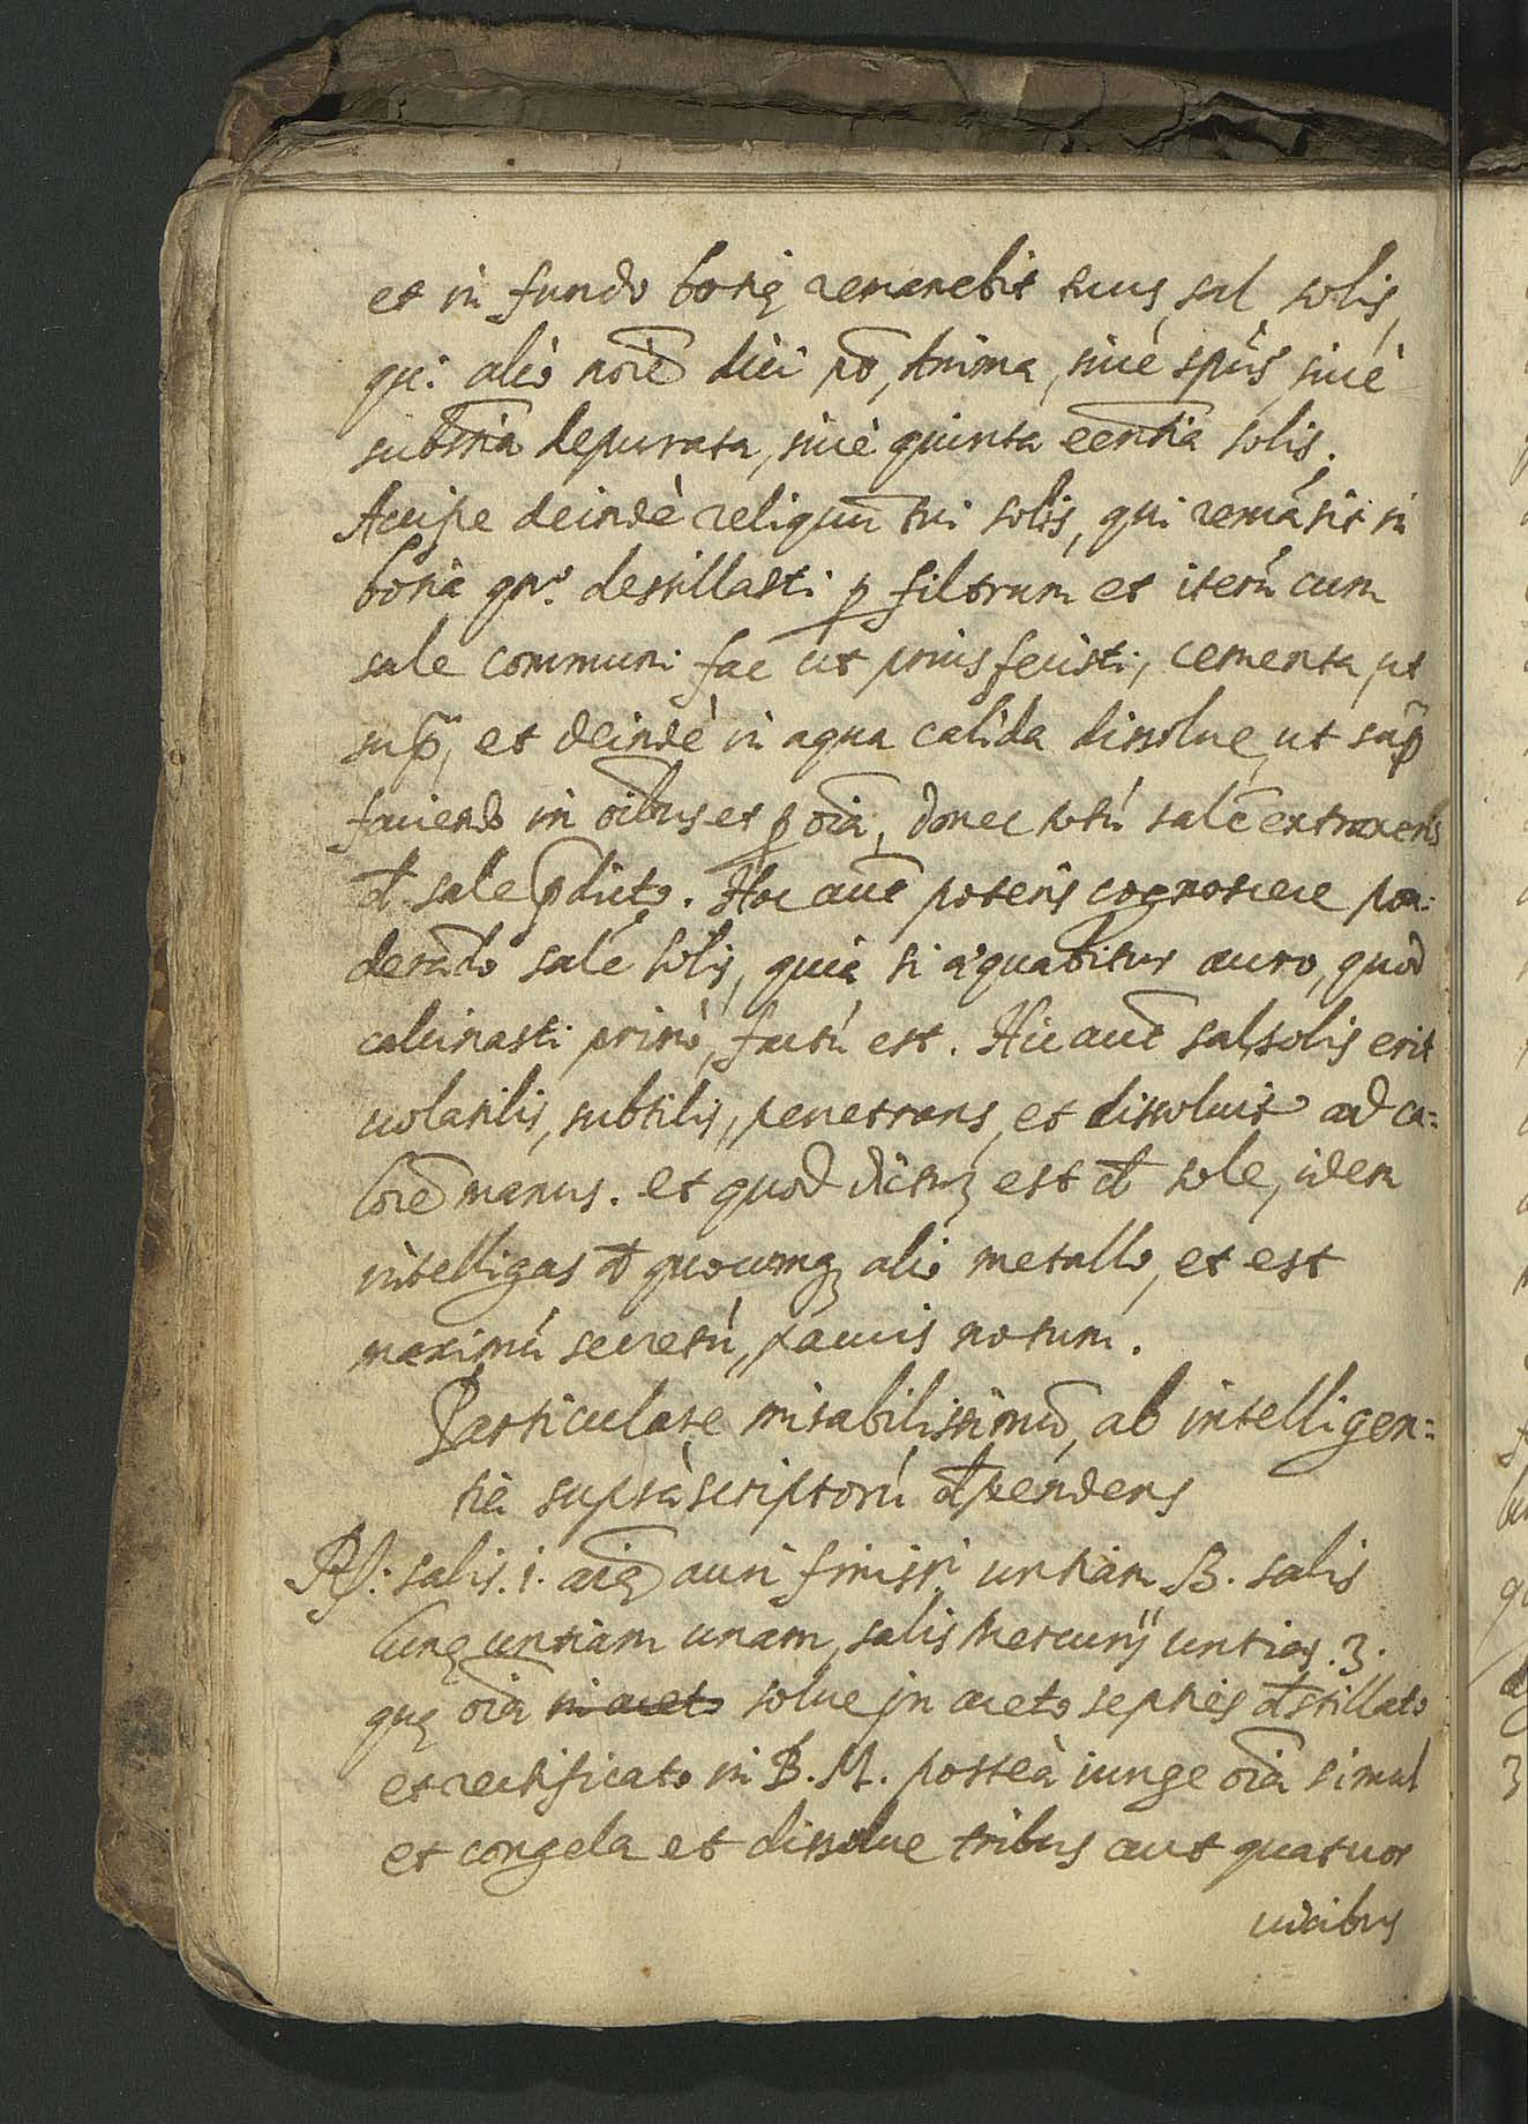 et in fundo botię remanebit tuus sal solis,
qui alio noīe dici põt, Anima, siuè spūs siuè
subtīia depurata, siuè quinta eentia solis.
Accipe deindè reliquū tui solis, qui remāsit in
botia qñ destillasti ꝑ filtrum et iterū cum
sale communi fac ut prius fecisti, cementa ut
supᷓ, et deindè in aqua calida dissolue, ut supᷓ
faciendo in oībus et ꝑ oīa, donec totū salē extraxeris
đ sale p̃dicto. Hoc aut̃ poteris cognoscere pon=
derādo salē solis, quia si ȩquabitur auro, quod
calcinasti primò, factū est. Hic aut̃ sal solis erit
uolatilis, subtilis, penetrans, et dissoluit ad ca=
lorē manus. et quod dictuȝ est đ sole, idem
intelligas đ quocumqȝ alio metallo, et est
maximū secretū, paucis notum.
Particulare mirabilissimū, ab intelligen=
tia supràscriptorū đpendens
℞: salis .i. aīę auri finissi untiam ß. salis
lunę untiam unam, salis Mercurij untias .3.
quę oīa in aceto solue in aceto septies đstillato
et rectificato in B. M. posteà iunge oīa simul
et congela et dissolue tribus aut quatuor
uicibus